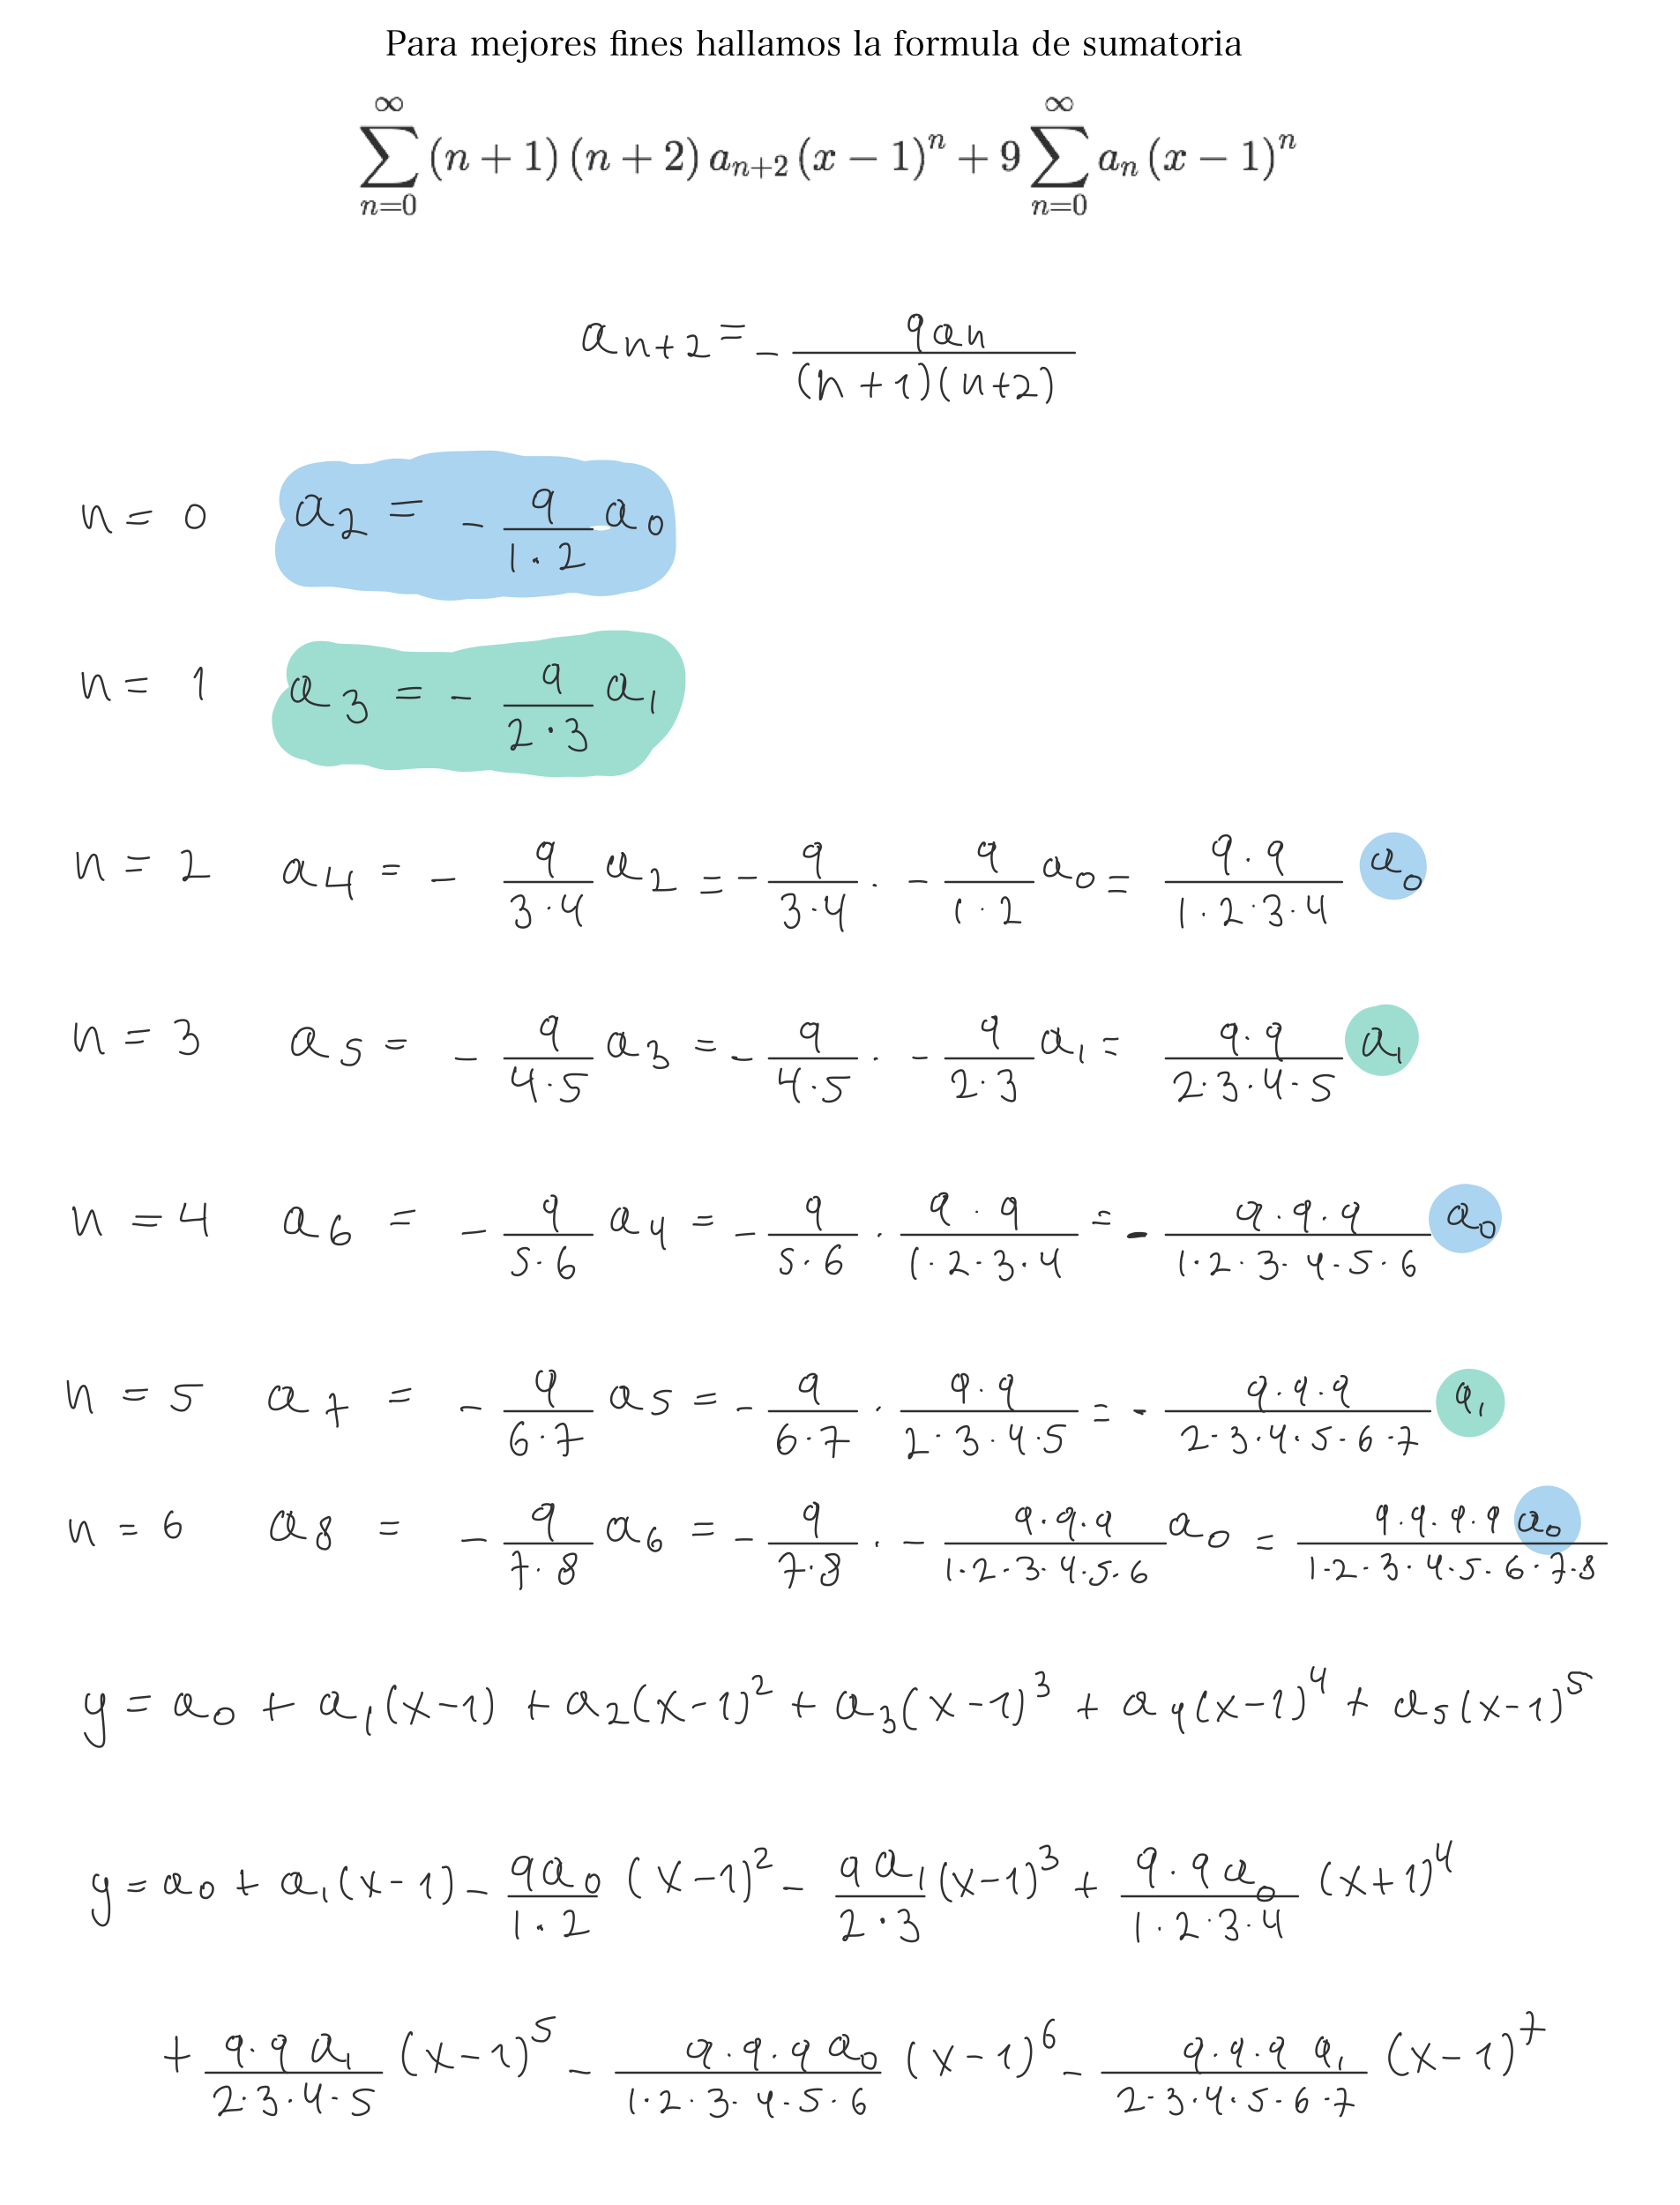 Para mejores fines hallamos la formula de sumatoria
\sum_{n=0}^{\infty} (n+1)(n+2) a_{n+2} (x-1)^n + 9 \sum_{n=0}^{\infty} a_n (x-1)^n
a_{n+2} = - \frac{9a_n}{(n+1)(n+2)}
n = 0 a_2 = - \frac{9}{1·2} a_0
n = 1 a_3 = - \frac{9}{2·3} a_1
n = 2 a_4 = - \frac{9}{3·4} a_2 = - \frac{9}{3·4} · - \frac{9}{1·2} a_0 = \frac{9·9}{1·2·3·4} a_0
n = 3 a_5 = - \frac{9}{4·5} a_3 = - \frac{9}{4·5} · - \frac{9}{2·3} a_1 = \frac{9·9}{2·3·4·5} a_1
n = 4 a_6 = - \frac{9}{5·6} a_4 = - \frac{9}{5·6} · \frac{9·9}{1·2·3·4} = - \frac{9·9·9}{1·2·3·4·5·6} a_0
n = 5 a_7 = - \frac{9}{6·7} a_5 = - \frac{9}{6·7} · \frac{9·9}{2·3·4·5} = - \frac{9·9·9}{2·3·4·5·6·7} a_1
n = 6 a_8 = - \frac{9}{7·8} a_6 = - \frac{9}{7·8} · - \frac{9·9·9}{1·2·3·4·5·6} a_0 = \frac{9·9·9·9 a_0}{1·2·3·4·5·6·7·8}
y = a_0 + a_1(x-1) + a_2(x-1)^2 + a_3(x-1)^3 + a_4(x-1)^4 + a_5(x-1)^5
y = a_0 + a_1(x-1) - \frac{9a_0}{1·2} (x-1)^2 - \frac{9a_1}{2·3} (x-1)^3 + \frac{9·9a_0}{1·2·3·4} (x+1)^4
+ \frac{9·9 a_1}{2·3·4·5} (x-1)^5 - \frac{9·9·9 a_0}{1·2·3·4·5·6} (x-1)^6 - \frac{9·9·9 a_1}{2·3·4·5·6·7} (x-1)^7